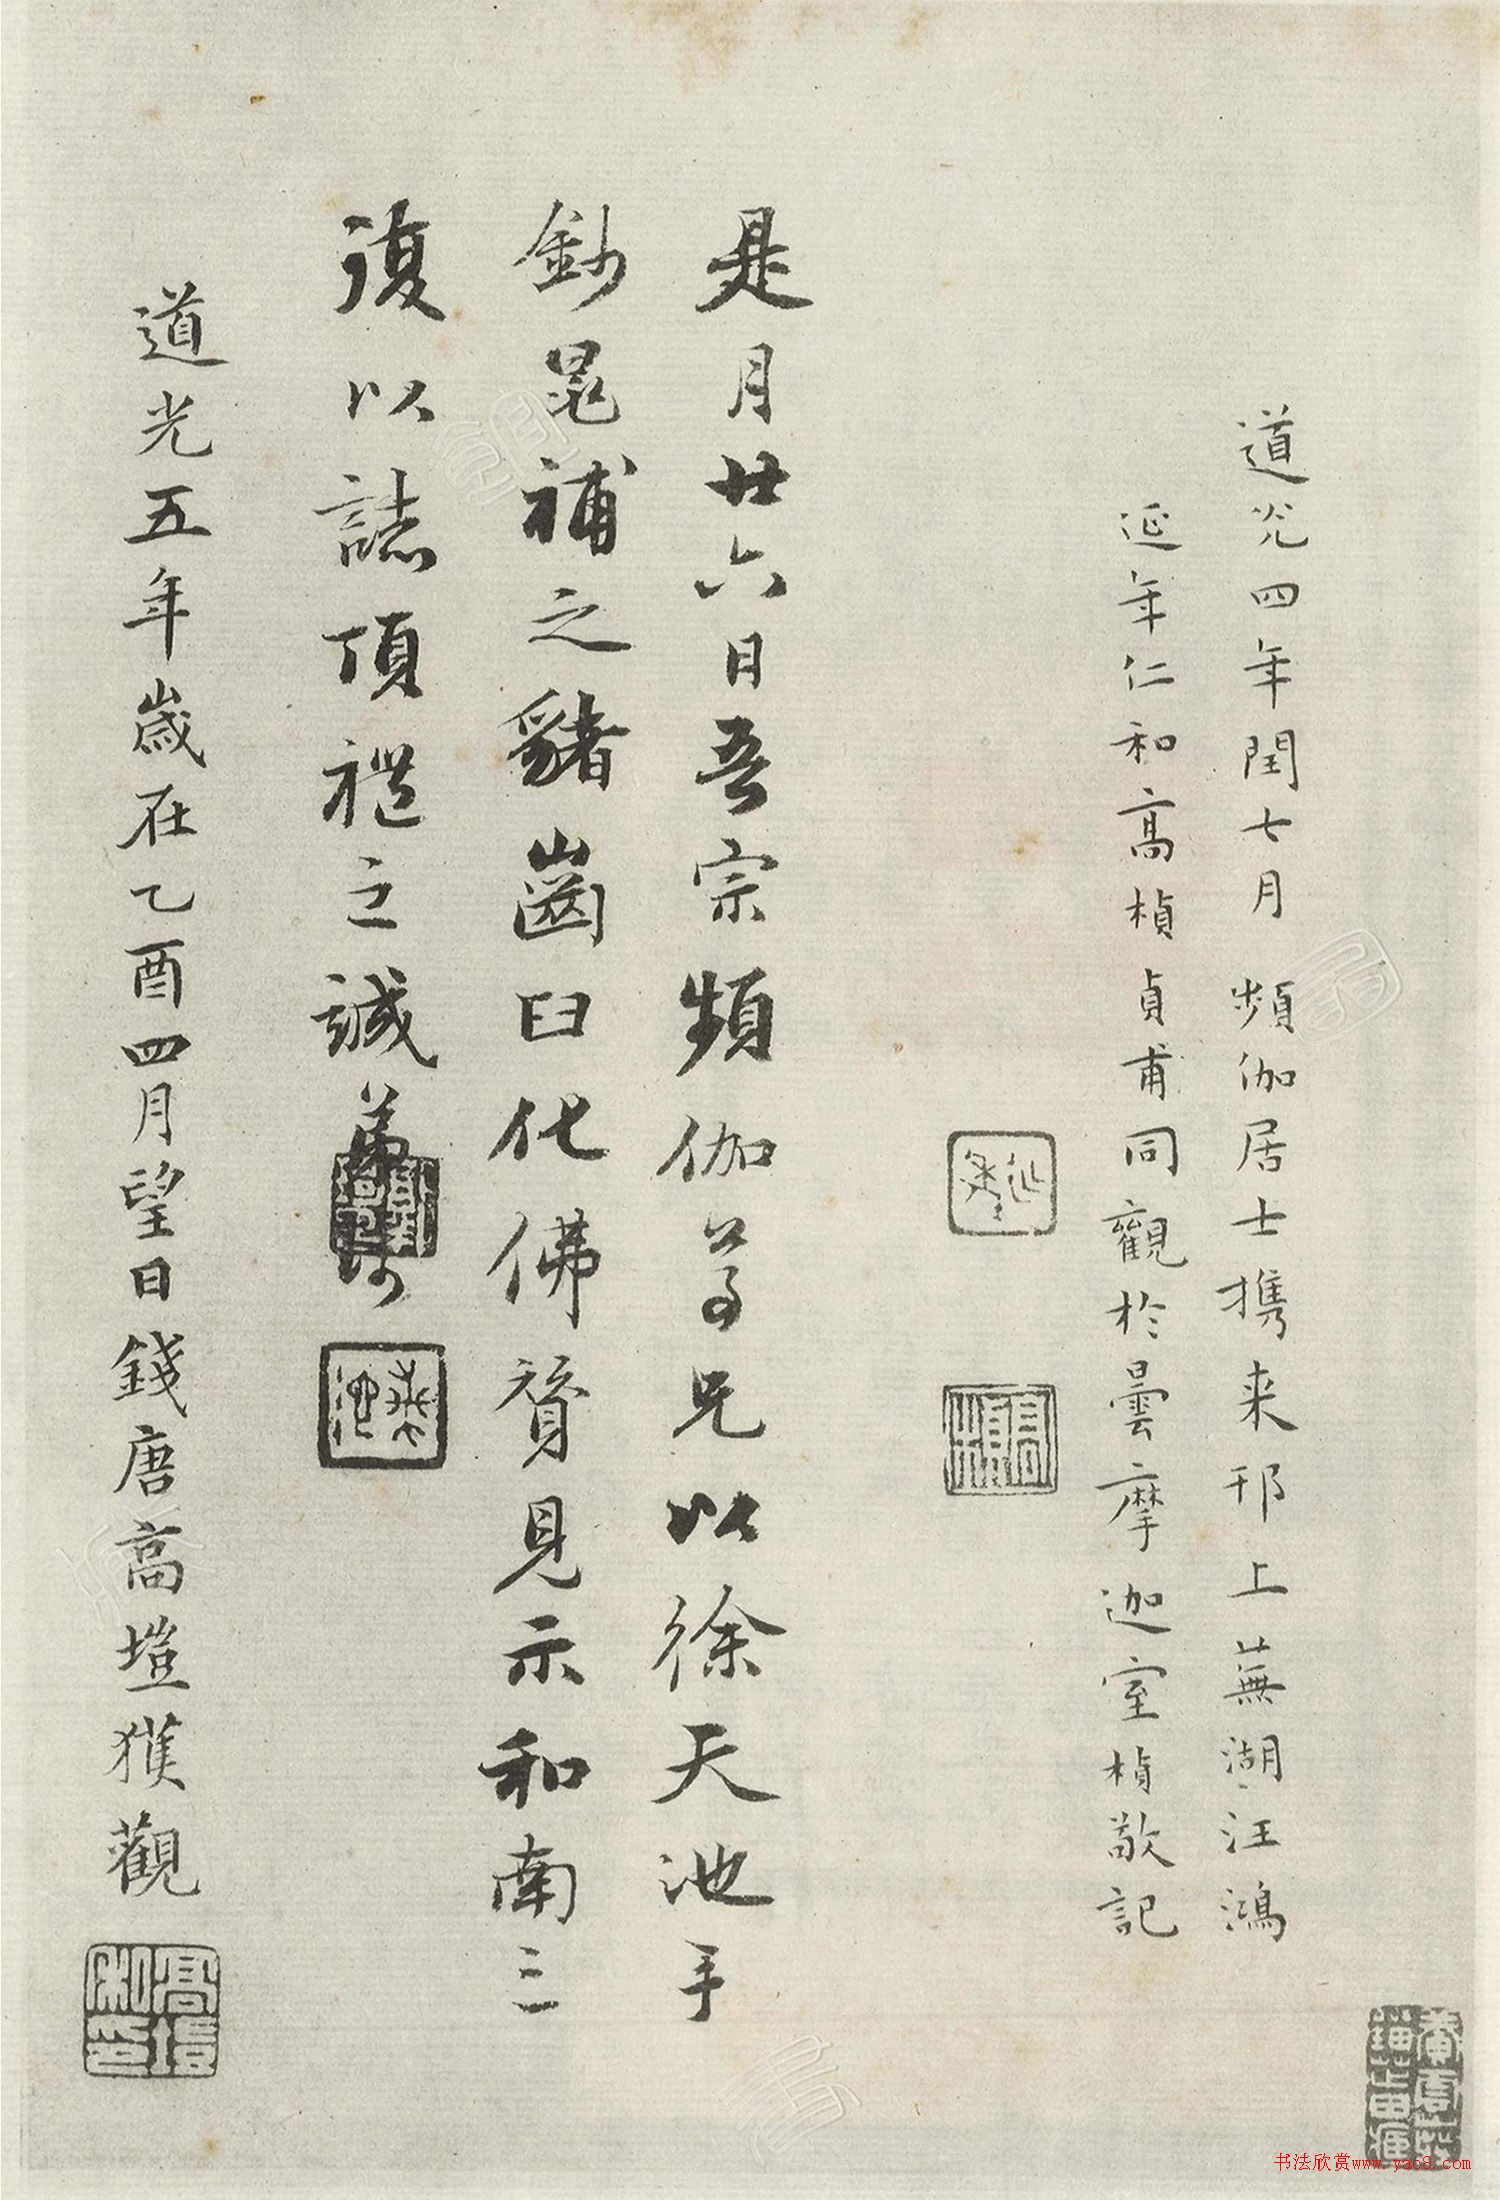 道光四年閏七月 頻伽居士携来邗上蕪湖汪鴻
延年仁和高楨貞甫同觀於曇摩迦室楨敬記
延年
高楨
是月廿六日吾宗頻伽尊兄以徐天池手
鈔晁補之豬齒臼化佛贊見示和南三
復以誌頂禮之誠
道光五年歲在乙酉四月望日錢唐高塏獲觀
高塏
书法欣赏www.yac8.com